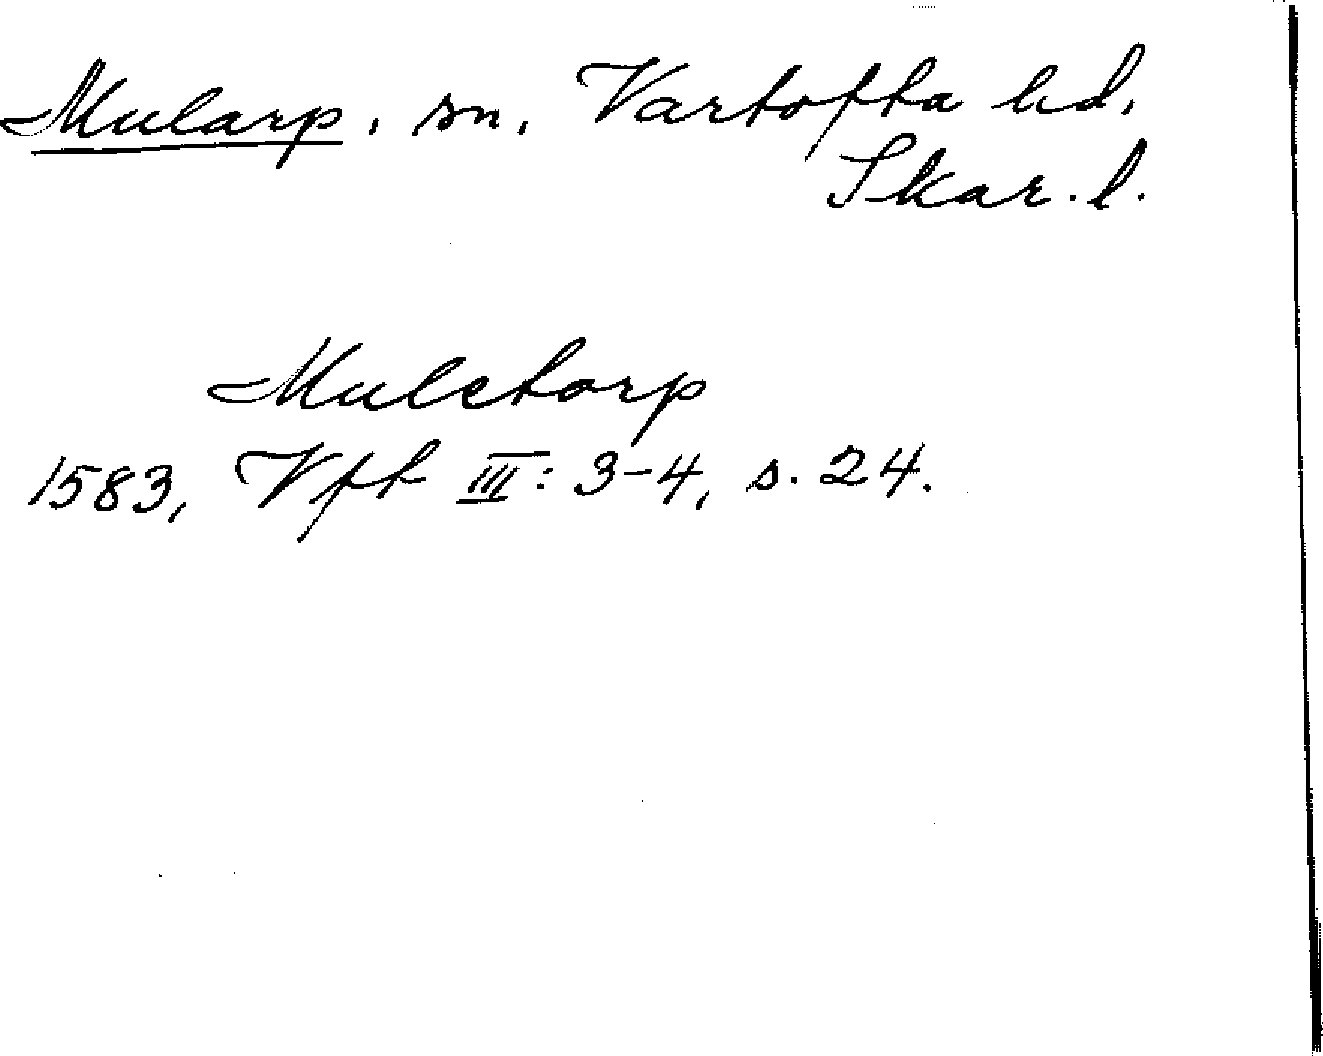 Mularp, sn, Vartofta hd,
Skar. l.
Muletorp
1583, Vft III: 3-4, s. 24.